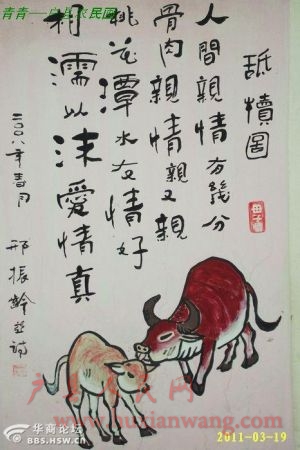 青青---户县农民画
舐犢圖
人間親情有幾分
骨肉親情親又親
桃花潭水友情好
相濡以沫愛情真
二〇〇八年春月
邢振齡並詩
www.huxianwang.com
2011-03-19
华商论坛
BBS.HSW.CN